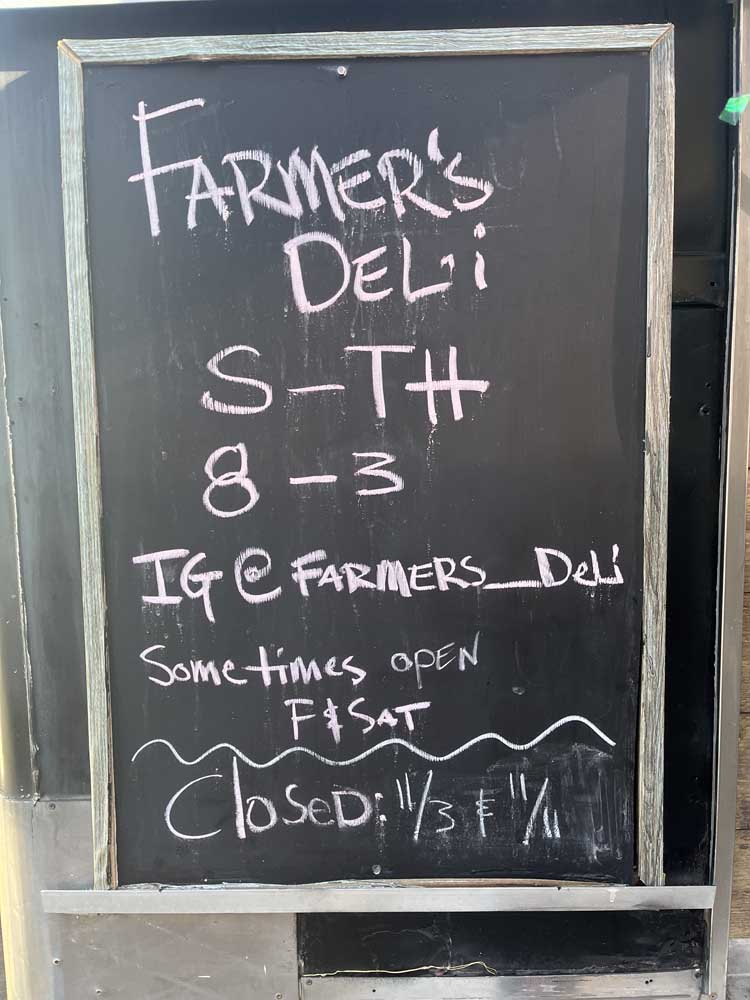 FARMER'S
DELi
S-TH
8-3
IG@FARMERS_Deli
Sometimes OPEN
F&SAT
ClOSeD: 11/3 & 11/11